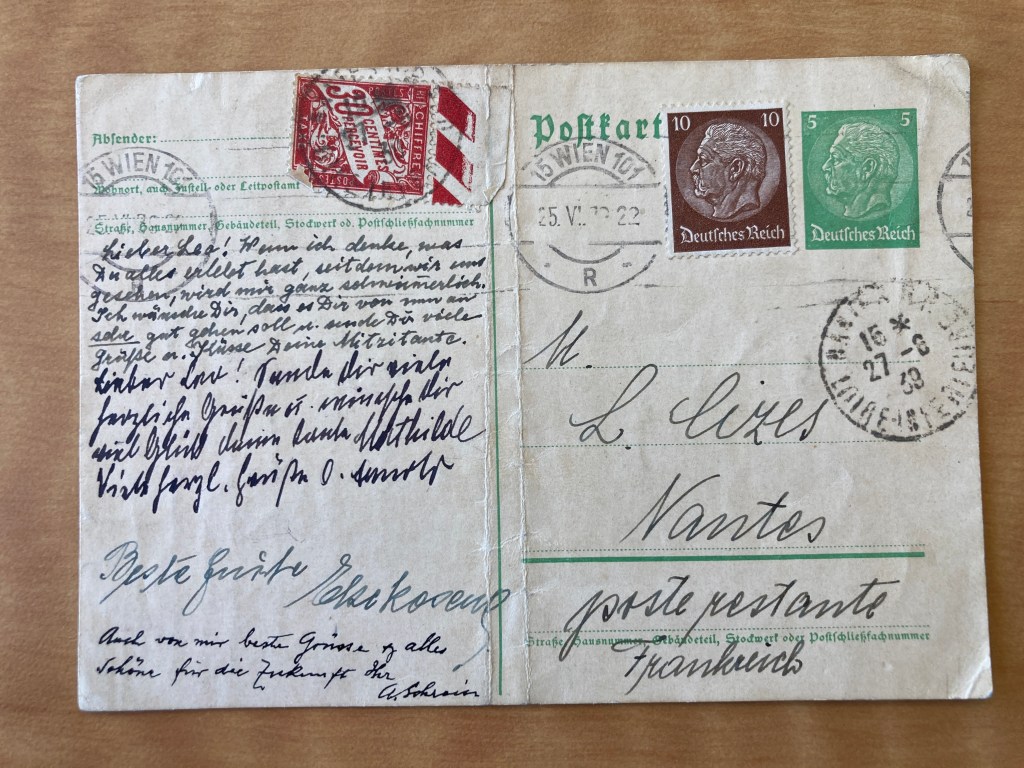 Absender:
Wohnort, auch Zustell- oder Leitpostamt
Straße, Hausnummer, Gebäudeteil, Stockwerk od. Postschließfachnummer
CHIFFRE
30
CENTIMES
A PERCEVOIR
POSTES
15 WIEN 101
Lieber Leo! Wenn ich denke, was
Du alles erlebt hast, seitdem wir uns
gesehen, wird mir ganz schwummerlich.
Ich wünsche Dir, dass es Dir von nun an
sehr gut gehen soll u. sende Dir viele
Grüße u. Küsse Deine Mitzitante.
Lieber Leo! Sende dir viele
herzliche Grüße u. wünsche dir
viel Glück deine tante Mathilde
Viele herzl. Grüße O. Arnold
Beste Grüße
Auch von mir beste Grüsse & alles
Schöne für die Zukunft Ihr
A. Schreier
Postkarte
15 WIEN 101
25. VI. 38 22
R
10 10
Deutsches Reich
5 5
Deutsches Reich
NANTES
15 *
27 -6
38
LOIRE-INFERIEURE
M.
L. Cizes
Nantes
poste restante
Straße, Hausnummer, Gebäudeteil, Stockwerk oder Postschließfachnummer
Frankreich